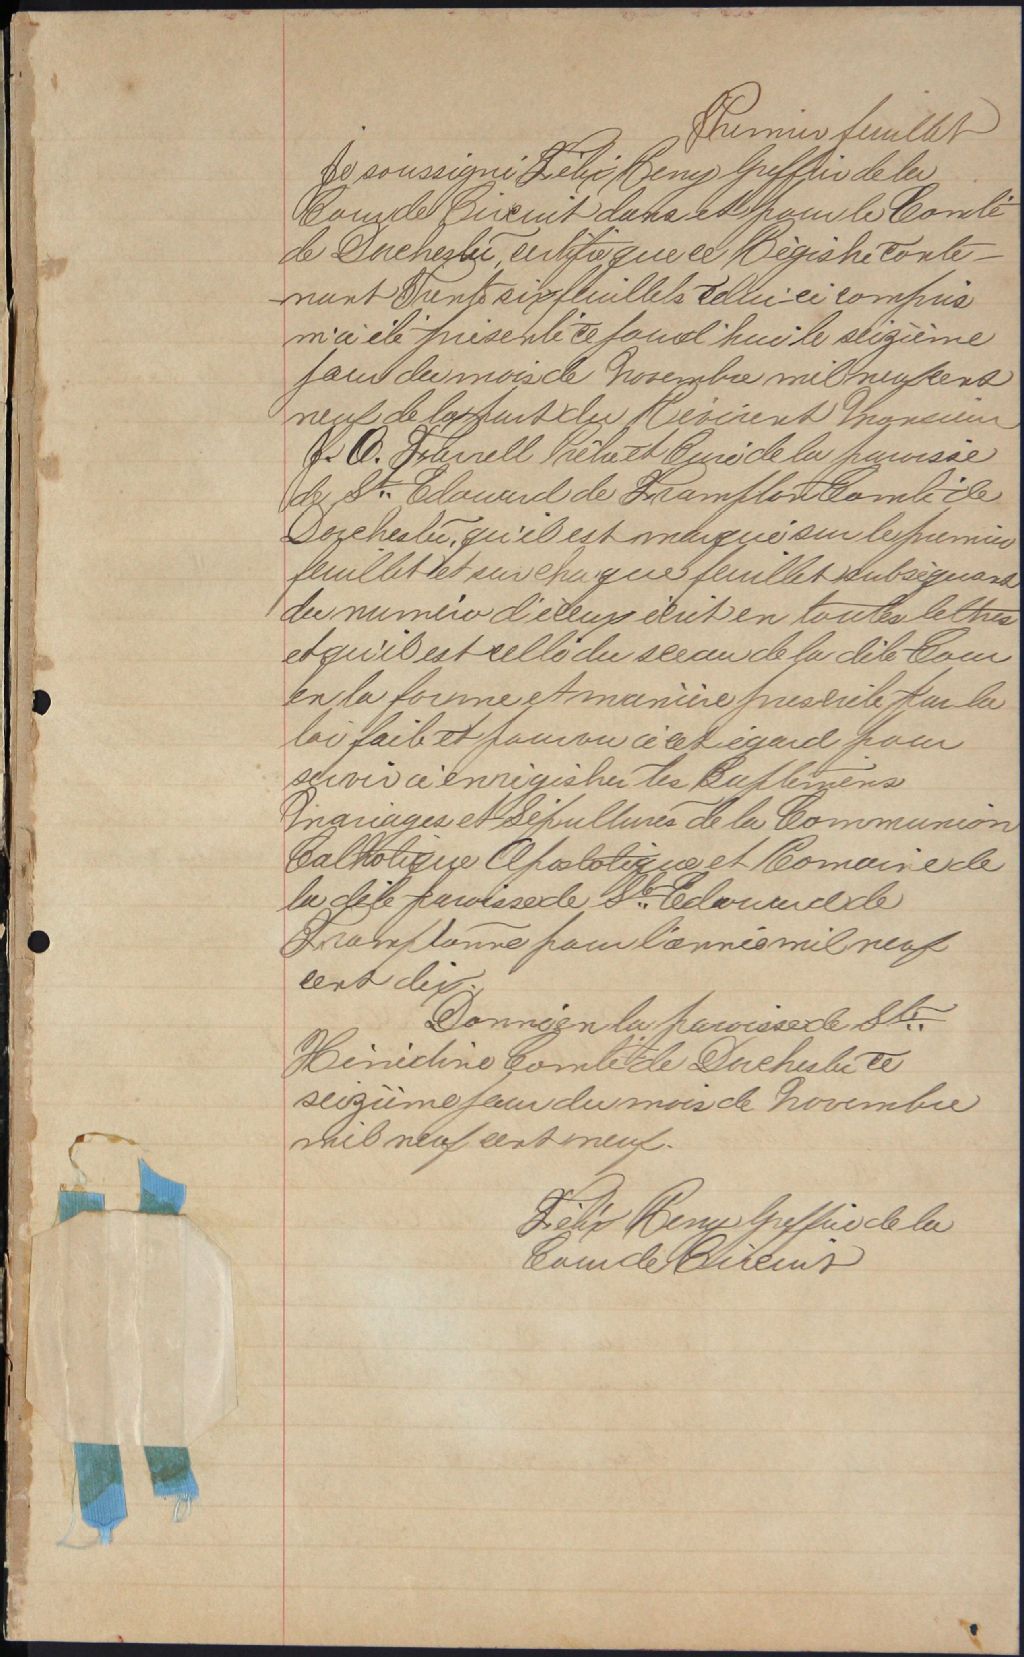 Premier feuillet
Je soussigné Félix Remy Greffier de la
Cour de Circuit dans et pour le Comté
de Dorchester, certifie que ce Régistre conte-
nant Trente six feuillets celui-ci compris
m'a été présenté ce jourd'hui le seizième
jour du mois de Novembre mil neuf cent
neuf de la part du Révérent Monsieur
J. O. Farrell Prêtre et Curé de la paroisse
de St. Edouard de Frampton Comté de
Dorchester, qu'il est marqué sur le premier
feuillet et sur chaque feuillet subséquant
du numéro d'iceux écrit en toutes lettres
et qu'il est scellé du sceau de la dite Cour
en la forme et manière prescrite par la
loi faite et pourvu à cet égard pour
servir à enrégistrer les Baptêmes
Mariages et Sépultures de la Communion
Catholique Apostolique et Romaine de
la dite paroisse de St. Edouard de
Framptonne pour l'année mil neuf
cent dix.
Donné en la paroisse de Ste.
Hénédine Comté de Dorchester ce
seizième jour du mois de Novembre
mil neuf cent neuf.
Félix Remy Greffier de la
Cour de Circuit